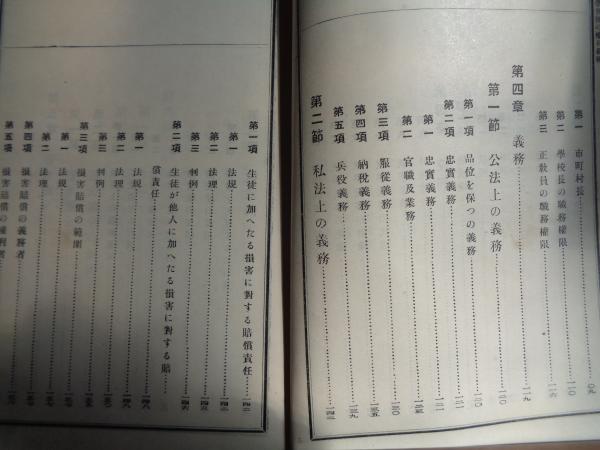 第一 市町村長…………一〇九
第二 學校長の職務權限…………一一〇
第三 正敎員の職務權限…………一一六
第四章 義務…………一一九
第一節 公法上の義務…………一二〇
第一項 品位を保つの義務…………一二〇
第二項 忠實義務…………一二一
第一 忠實義務…………一二一
第二 官職及業務…………一二五
第三項 服從義務…………一三〇
第四項 納稅義務…………一三五
第五項 兵役義務…………一三九
第二節 私法上の義務…………一四二
第一項 生徒に加へたる損害に對する賠償責任…………一四二
第一 法規…………一四二
第二 法理…………一四三
第三 判例…………一四五
第二項 生徒が他人に加へたる損害に對する賠
償責任…………一四六
第一 法規…………一四八
第二 法理…………一四八
第三 判例…………一五〇
第三項 損害賠償の範圍
第一 法規
第二 法理…………一五七
第四項 損害賠償の義務者…………一五七
第五項 損害賠償の權利者